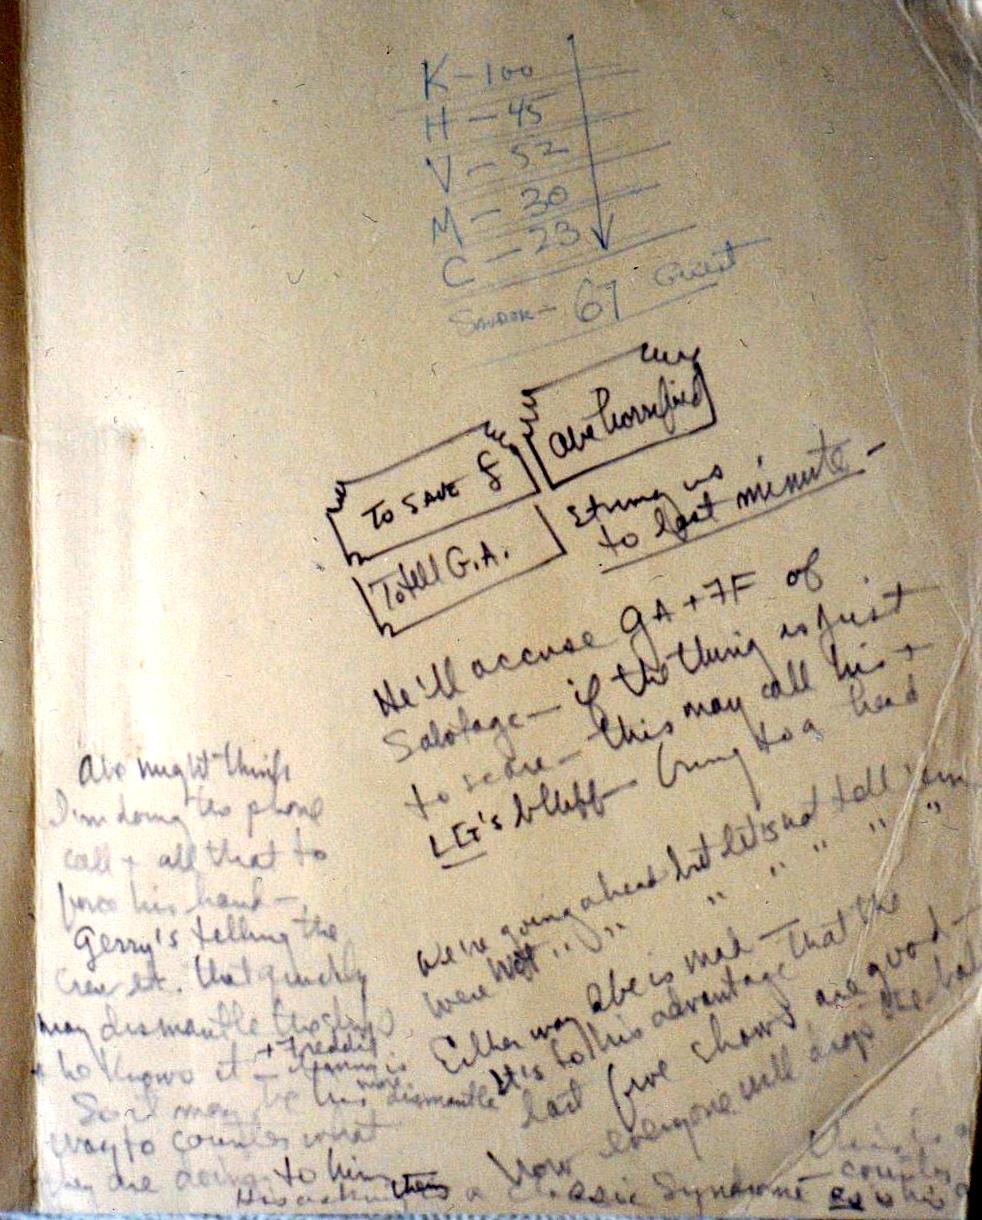 K - 100
H - 45
V - 52
M - 30
C - 23
67 Guest
To SAVE
Abe horrified
To tell G.A.
Strung us
to last minute -
He'll accuse GA + 7F of
Sabotage - if the thing is just
to scare - this may call his +
LET'S bluff - bring to a head
We're going ahead but let's not tell
We're not " " " " " "
Either way Abe is mad - that the
It's to his advantage
last five shows are good -
Now everyone will drop the ball
a classic syndrome - as is his
Abe might think
I'm doing this phone
call + all that to
force his hand -
Gerry's telling the
Crew etc. that quickly
may dismantle the show
+ Freddie
who knows it
more dismantle
So it may be his
way to counter what
they are doing to him